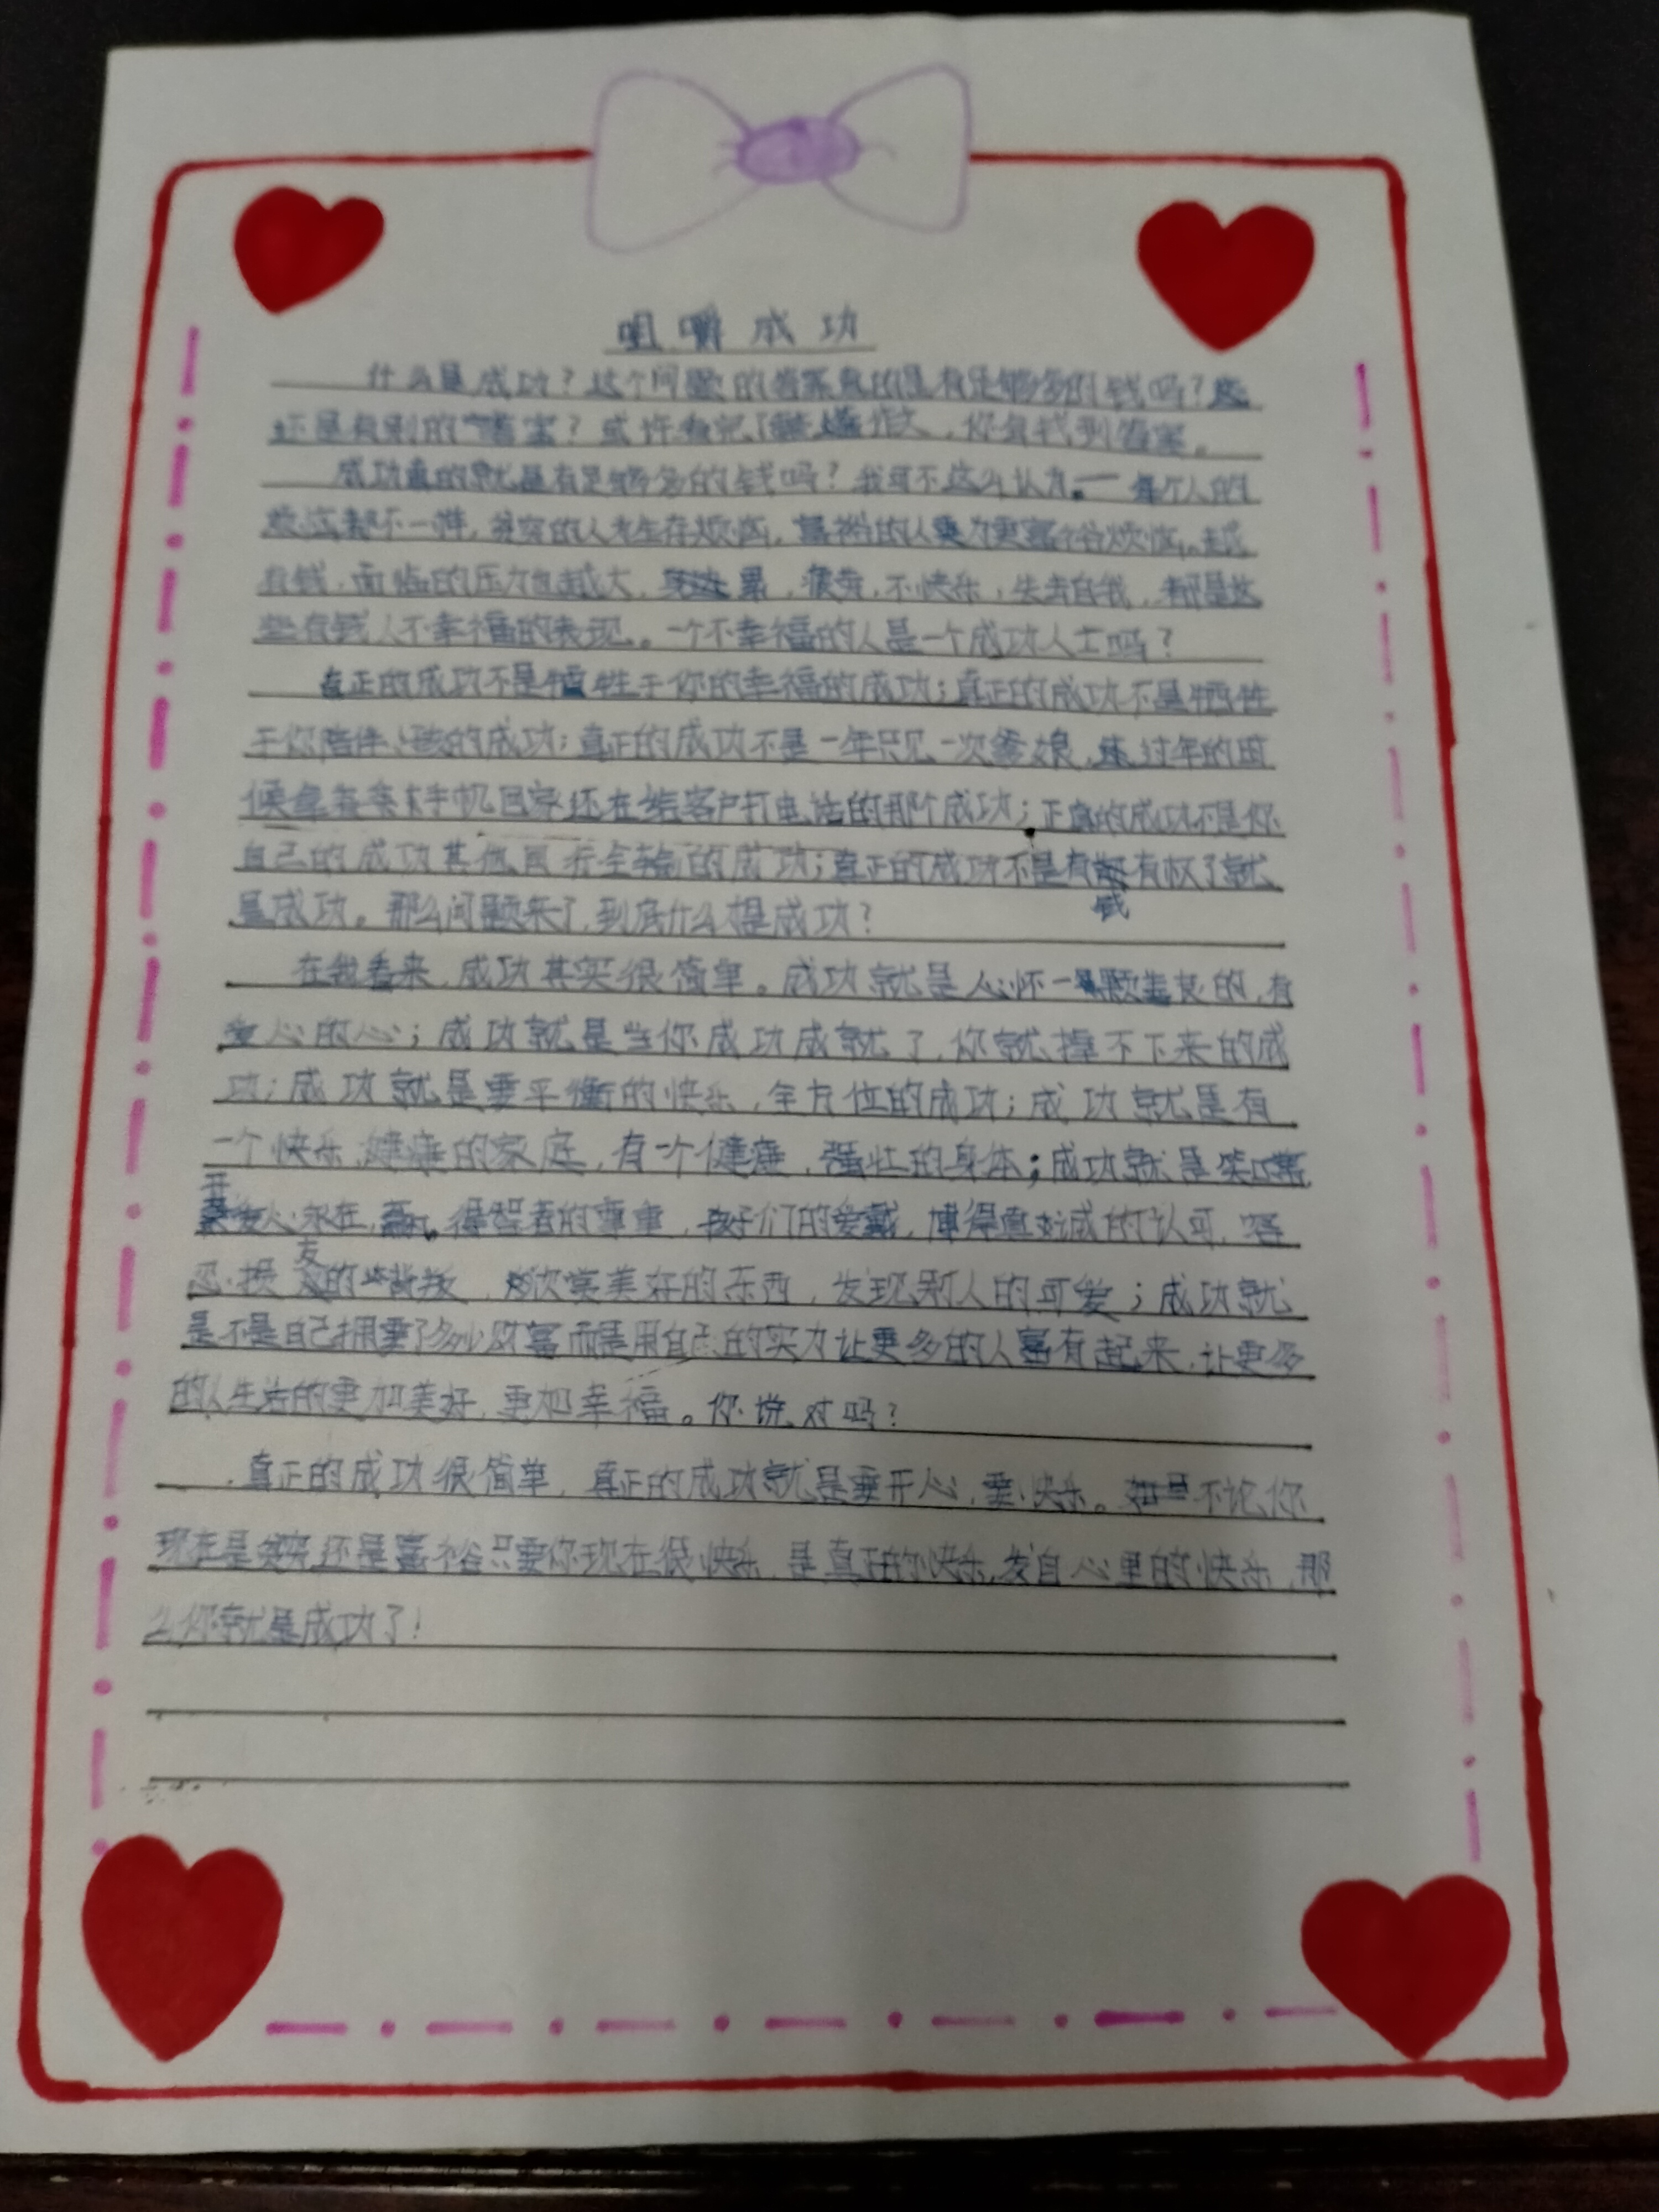 咀嚼成功
什么是成功？这个问题的答案真的是有足够多的钱吗？
还是有别的答案？或许看完了作文，你会找到答案。
成功真的就是有足够多的钱吗？我可不这么认为。每个人的
想法都不一样，贫穷的人为生存烦恼，富裕的人更为更富裕烦恼。越
有钱，面临的压力也越大，累，疲劳，不快乐，失去自我，都是这
些有钱人不幸福的表现。一个不幸福的人是一个成功人士吗？
真正的成功不是牺牲于你的幸福的成功；真正的成功不是牺牲
于你陪伴小孩的成功；真正的成功不是一年只见一次爹娘，连过年的时
候拿着手机回家还在给客户打电话的那个成功；正真的成功不是你
自己的成功其他司行全输的成功；真正的成功不是有钱有权了就
是成功。那么问题来了，到底什么才是成功？
在我看来，成功其实很简单。成功就是心怀一颗善良的，有
爱心的心；成功就是当你成功成就了，你就掉不下来的成
功；成功就是要平衡的快乐，全方位的成功；成功就是有
一个快乐，健康的家庭，有一个健康，强壮的身体；成功就是笑口常
开爱心永在，赢得智者的尊重，孩子们的爱戴，博得真诚的认可，容
忍损友的背叛，欣赏美好的东西，发现别人的可爱；成功就
是不是自己拥要了多少财富而是用自己的实力让更多的人富有起来，让更多
的人生活的更加美好，更加幸福。你说对吗？
真正的成功很简单，真正的成功就是要开心，要快乐。不论你
现在是贫穷还是富裕只要你现在很快乐，是真正的快乐，发自心里的快乐，那
么你就是成功了！